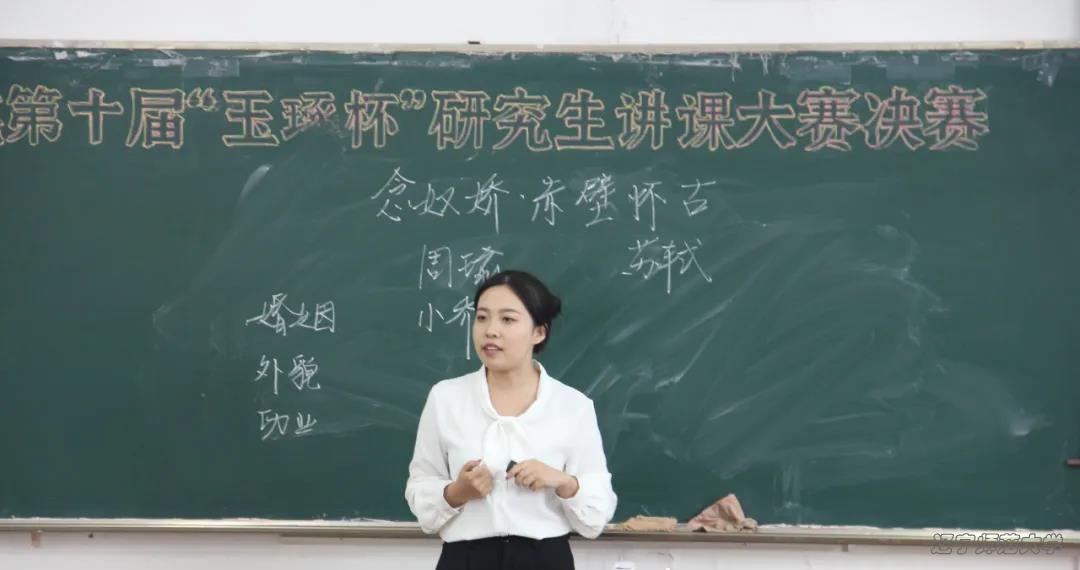 第十届“玉琢杯”研究生讲课大赛决赛
念奴娇·赤壁怀古
周瑜 苏轼
婚姻 小乔
外貌
功业
辽宁师范大学